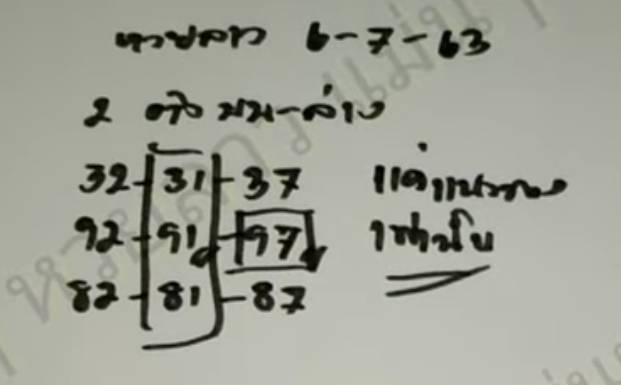 หวยลาว 6-7-63
2 ตัว บน-ล่าง
32-31-37 แค่แนวทาง
92-91-97 เท่านั้น
82-81-87